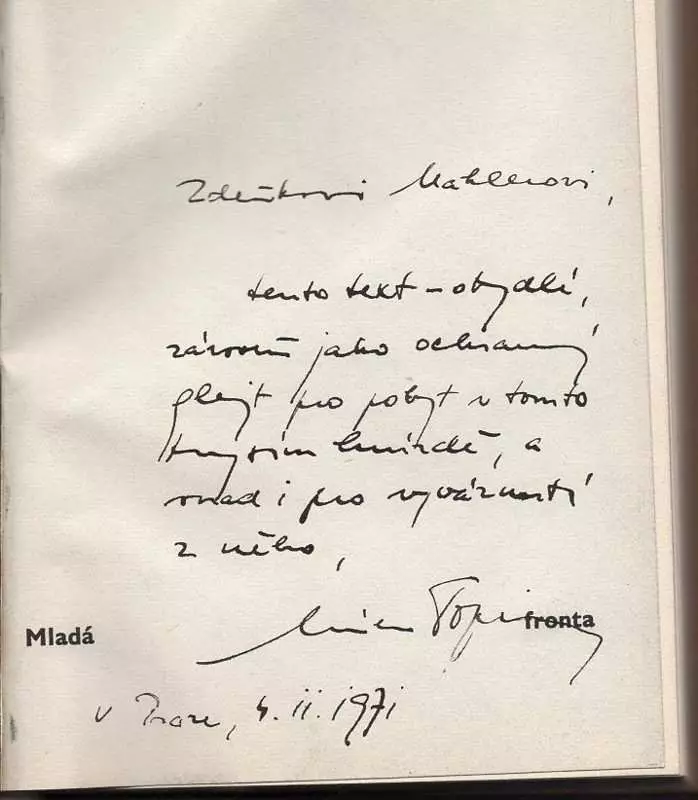 Zdeňkovi Mahlerovi,
tento text – obydlí,
zároveň jako ochranný
glejt pro pobyt v tomto
hmyzím hnízdě, a
snad i pro vyváznutí
z něho,
Mladá fronta
v Praze, 4. II. 1971